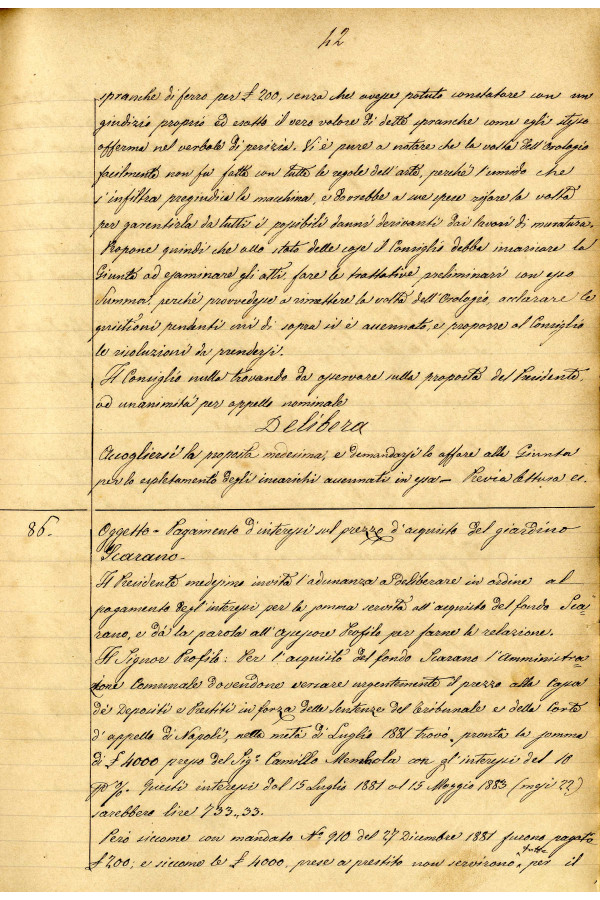 42
spranche di ferro per £ 200, senza che avesse potuto constatare con un
giudizio proprio ed esatto il vero valore di dette spranche come egli stesso
afferma nel verbale di perizia. Vi è pure a notare che la volta dell'Orologio
facilmente non fu fatta con tutte le regole dell'arte, perchè l'umido che
s'infiltra pregiudica la macchina, e dovrebbe a sue spese rifare la volta
per garentirla da tutti i possibili danni derivanti dai lavori di muratura.
Propone quindi che allo stato delle cose il Consiglio debba incaricare la
Giunta ad esaminare gli atti, fare le trattative preliminari con esso
Summa, perchè provvedesse a rimettere la volta dell'Orologio, acclarare le
quistioni pendenti cui di sopra si è accennato, e proporre al Consiglio
le risoluzioni da prendersi.
Il Consiglio nulla trovando da osservare sulla proposta del Presidente,
ad unanimità per appello nominale
Delibera
Accogliersi la proposta medesima, e demandarsi lo affare alla Giunta
per lo espletamento degli incarichi accennati in essa — Previa lettura ec.
86. Oggetto = Pagamento d'interessi sul prezzo d'acquisto del giardino
Scarano.
Il Presidente medesimo invita l'adunanza a deliberare in ordine al
pagamento degl'interessi per la somma servita all'acquisto del fondo Sca=
rano, e dà la parola all'Assessore Profilo per farne la relazione.
Il Signor Profilo: Per l'acquisto del fondo Scarano l'Amministra=
zione Comunale dovendone versare urgentemente il prezzo alla Cassa
dè Depositi e Prestiti in forza delle Sentenze del tribunale e della Corte
d'appello di Napoli, nella metà di Luglio 1881 trovò pronta la somma
di £ 4000 presso del Sigr. Camillo Membola con gl'interessi del 10
p %. Questi interessi dal 15 Luglio 1881 al 15 Maggio 1883 (mesi 22)
sarebbero lire 733,,33.
Però siccome con mandato N° 910 del 27 Dicembre 1881 furono pagate
£ 200; e siccome le £ 4000, prese a prestito non servirono tutte per il